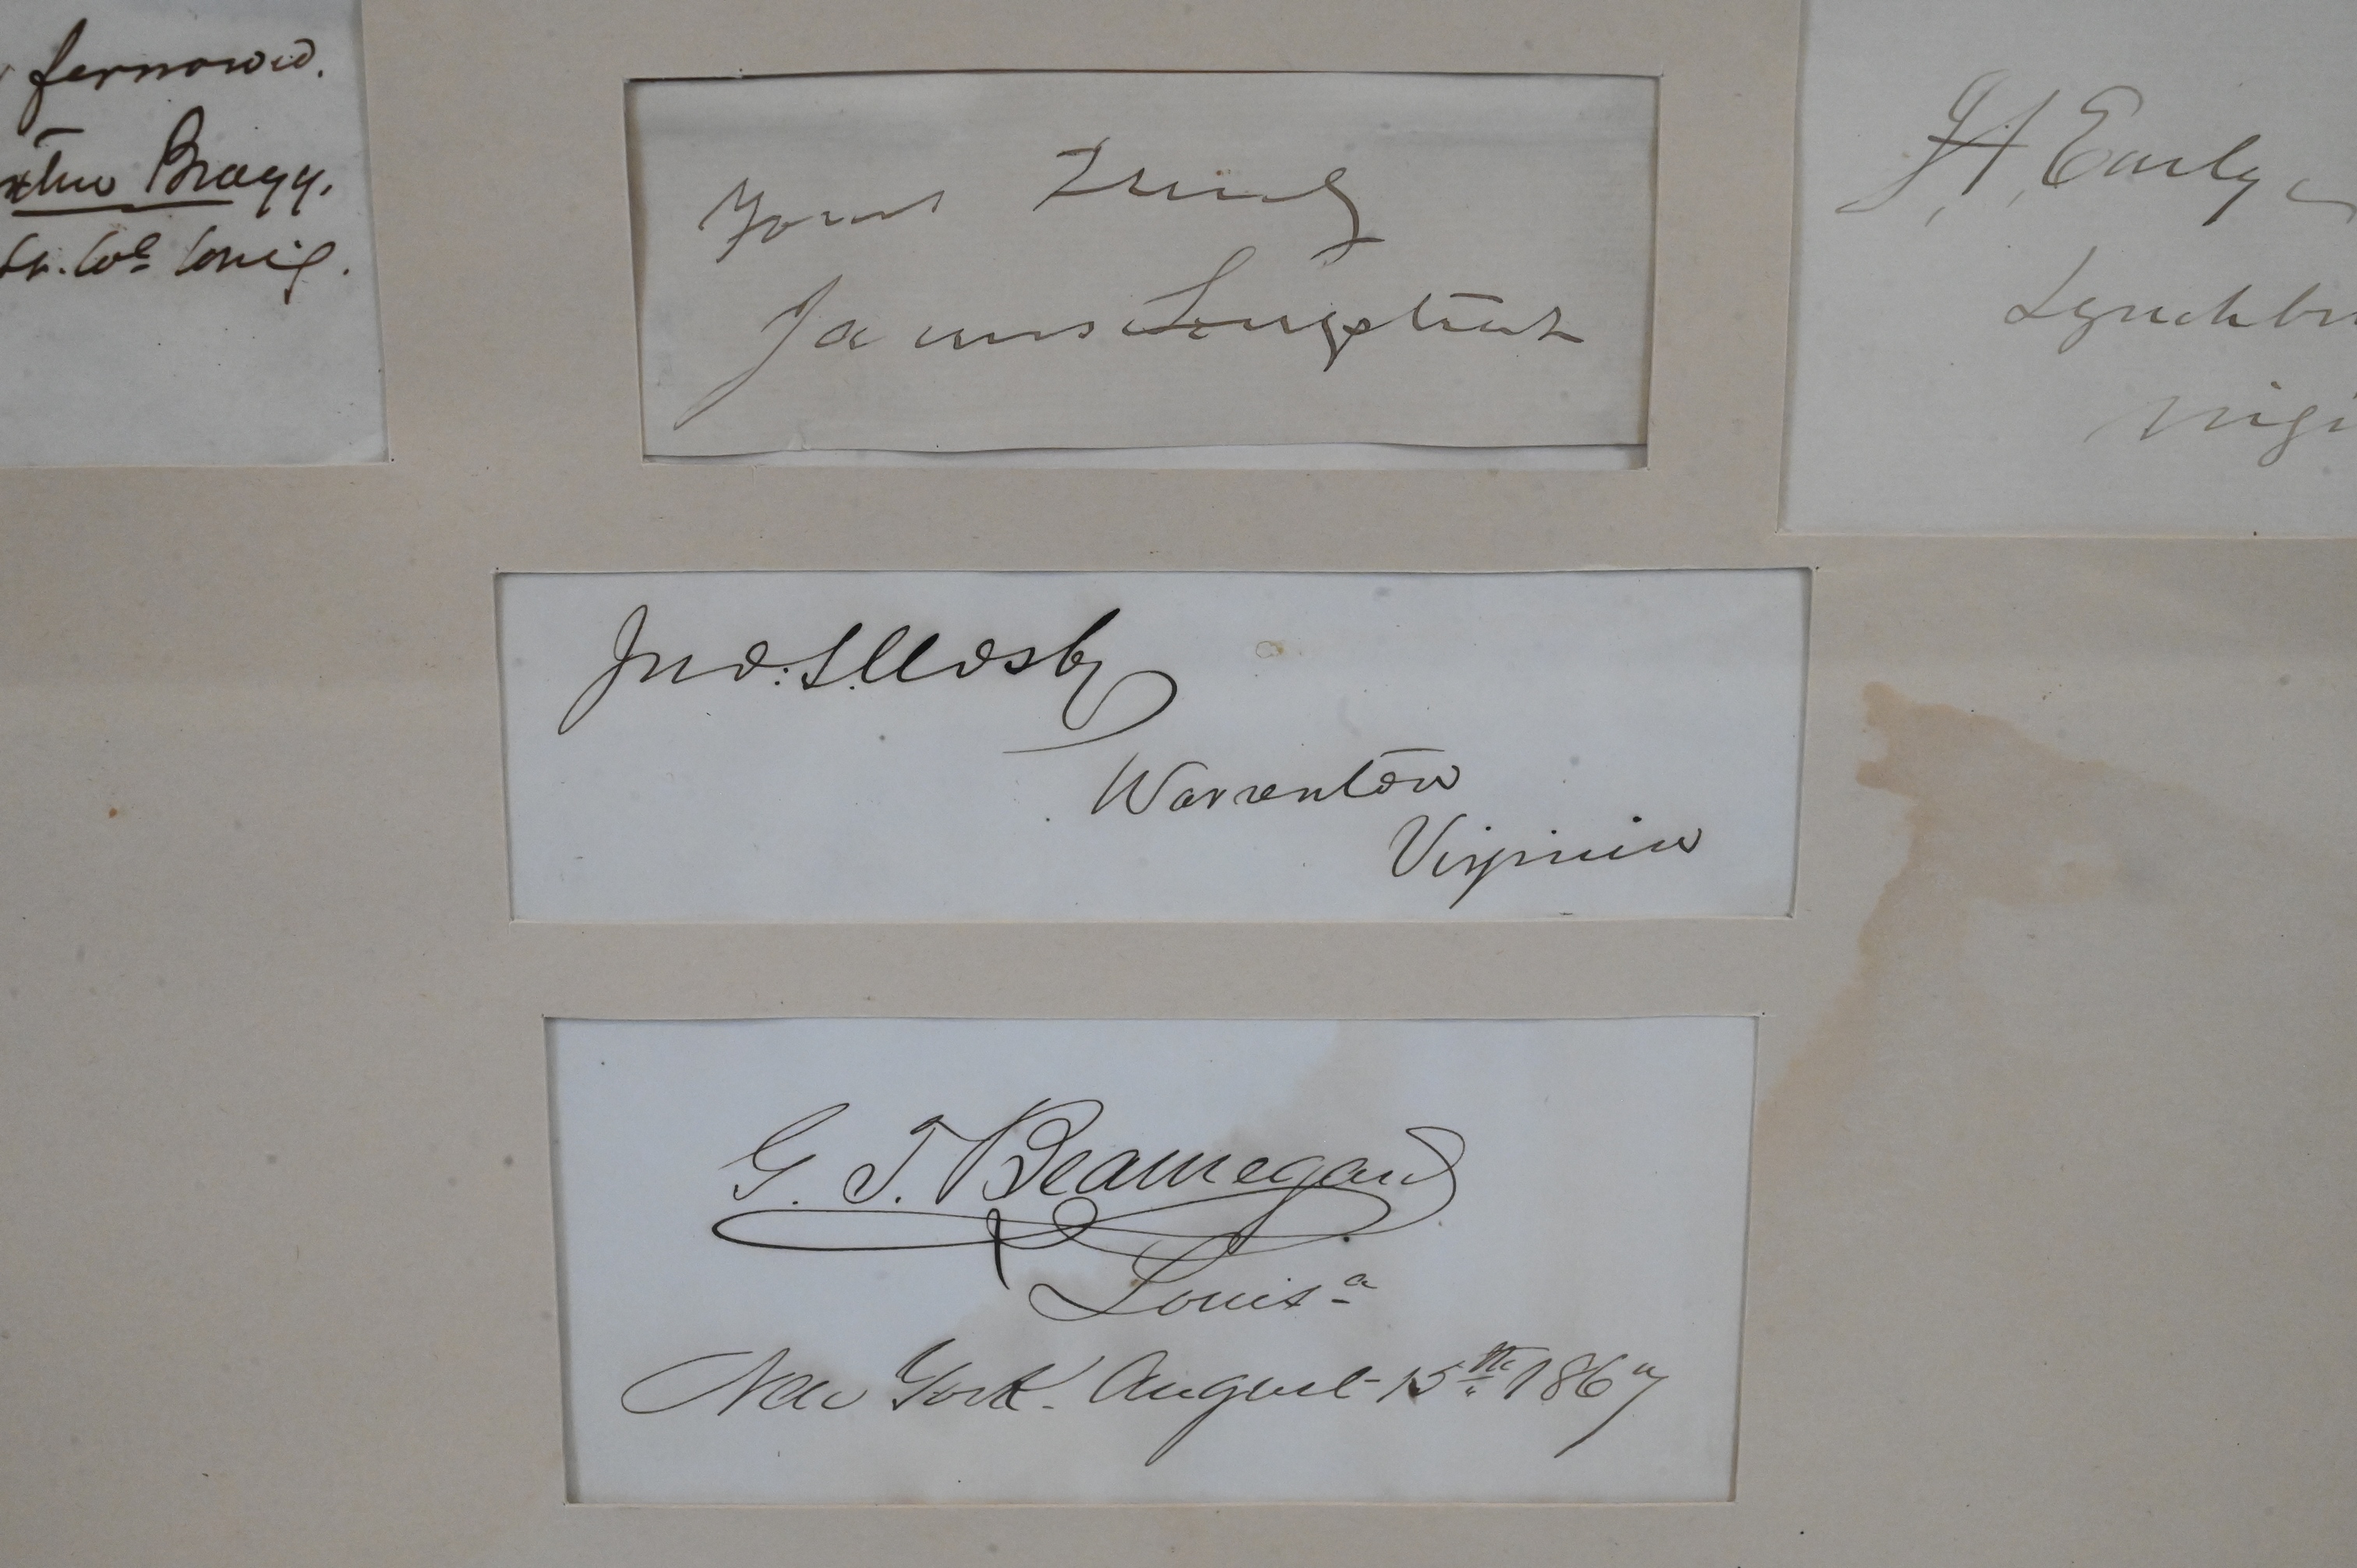 Braxton Bragg.
Yours Truly
James Longstreet
J. A. Early
Lynchbu
Virgi
Jno: S. Mosby
Warrenton
Virginia
G. T. Beauregard
Louis^a
New York. August 15th 1867